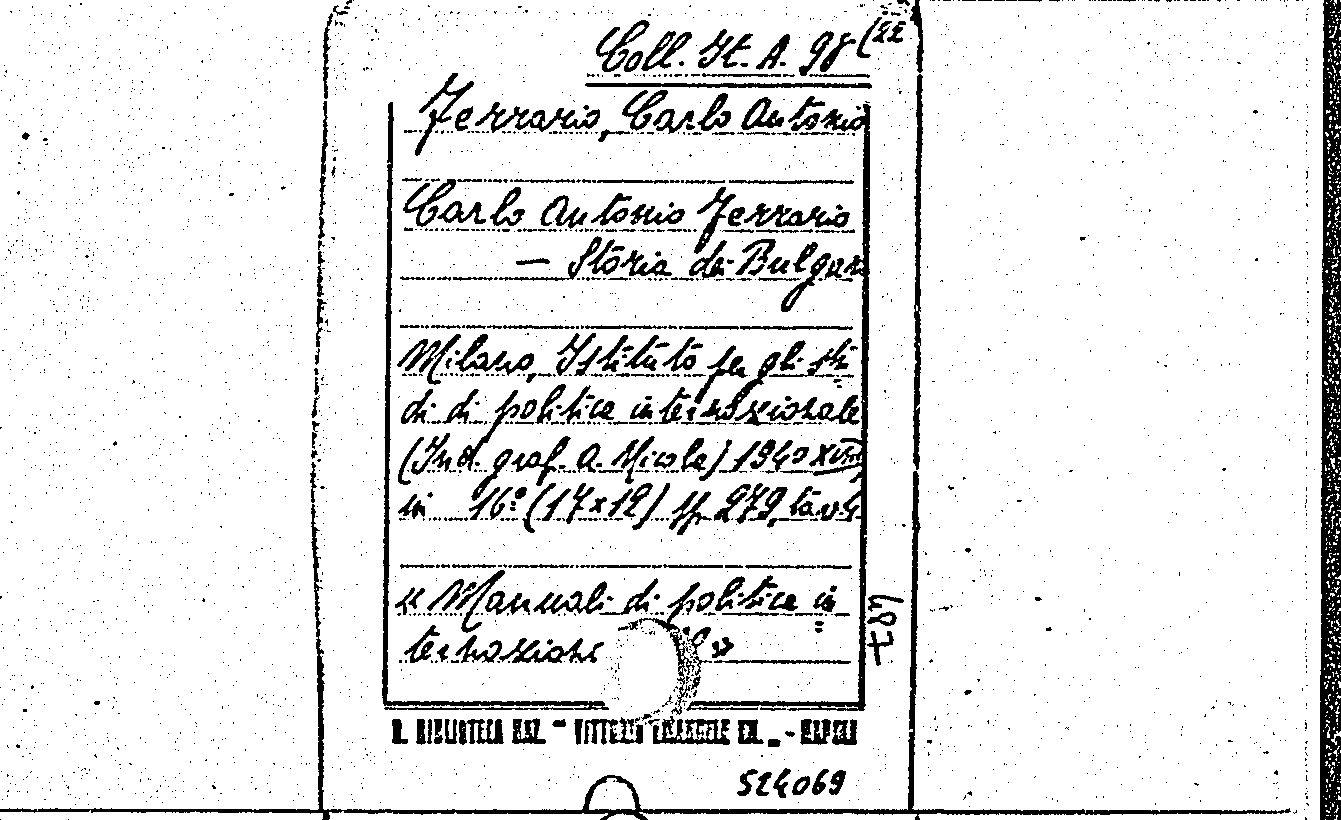 Coll. It. A. 98 (22
Ferrario, Carlo Antonio
Carlo Antonio Ferrario
— Storia dei Bulgari
Milano, Istituto per gli stu=
di di politica internazionale
(Ind. graf. A. Nicola) 1940 XVIII
in 16º (17x12) pp. 279, tavole
« Manuali di politica in=
ternazionale »
487
R. BIBLIOTECA NAZ. - VITTORIO EMANUELE III. - NAPOLI
524069